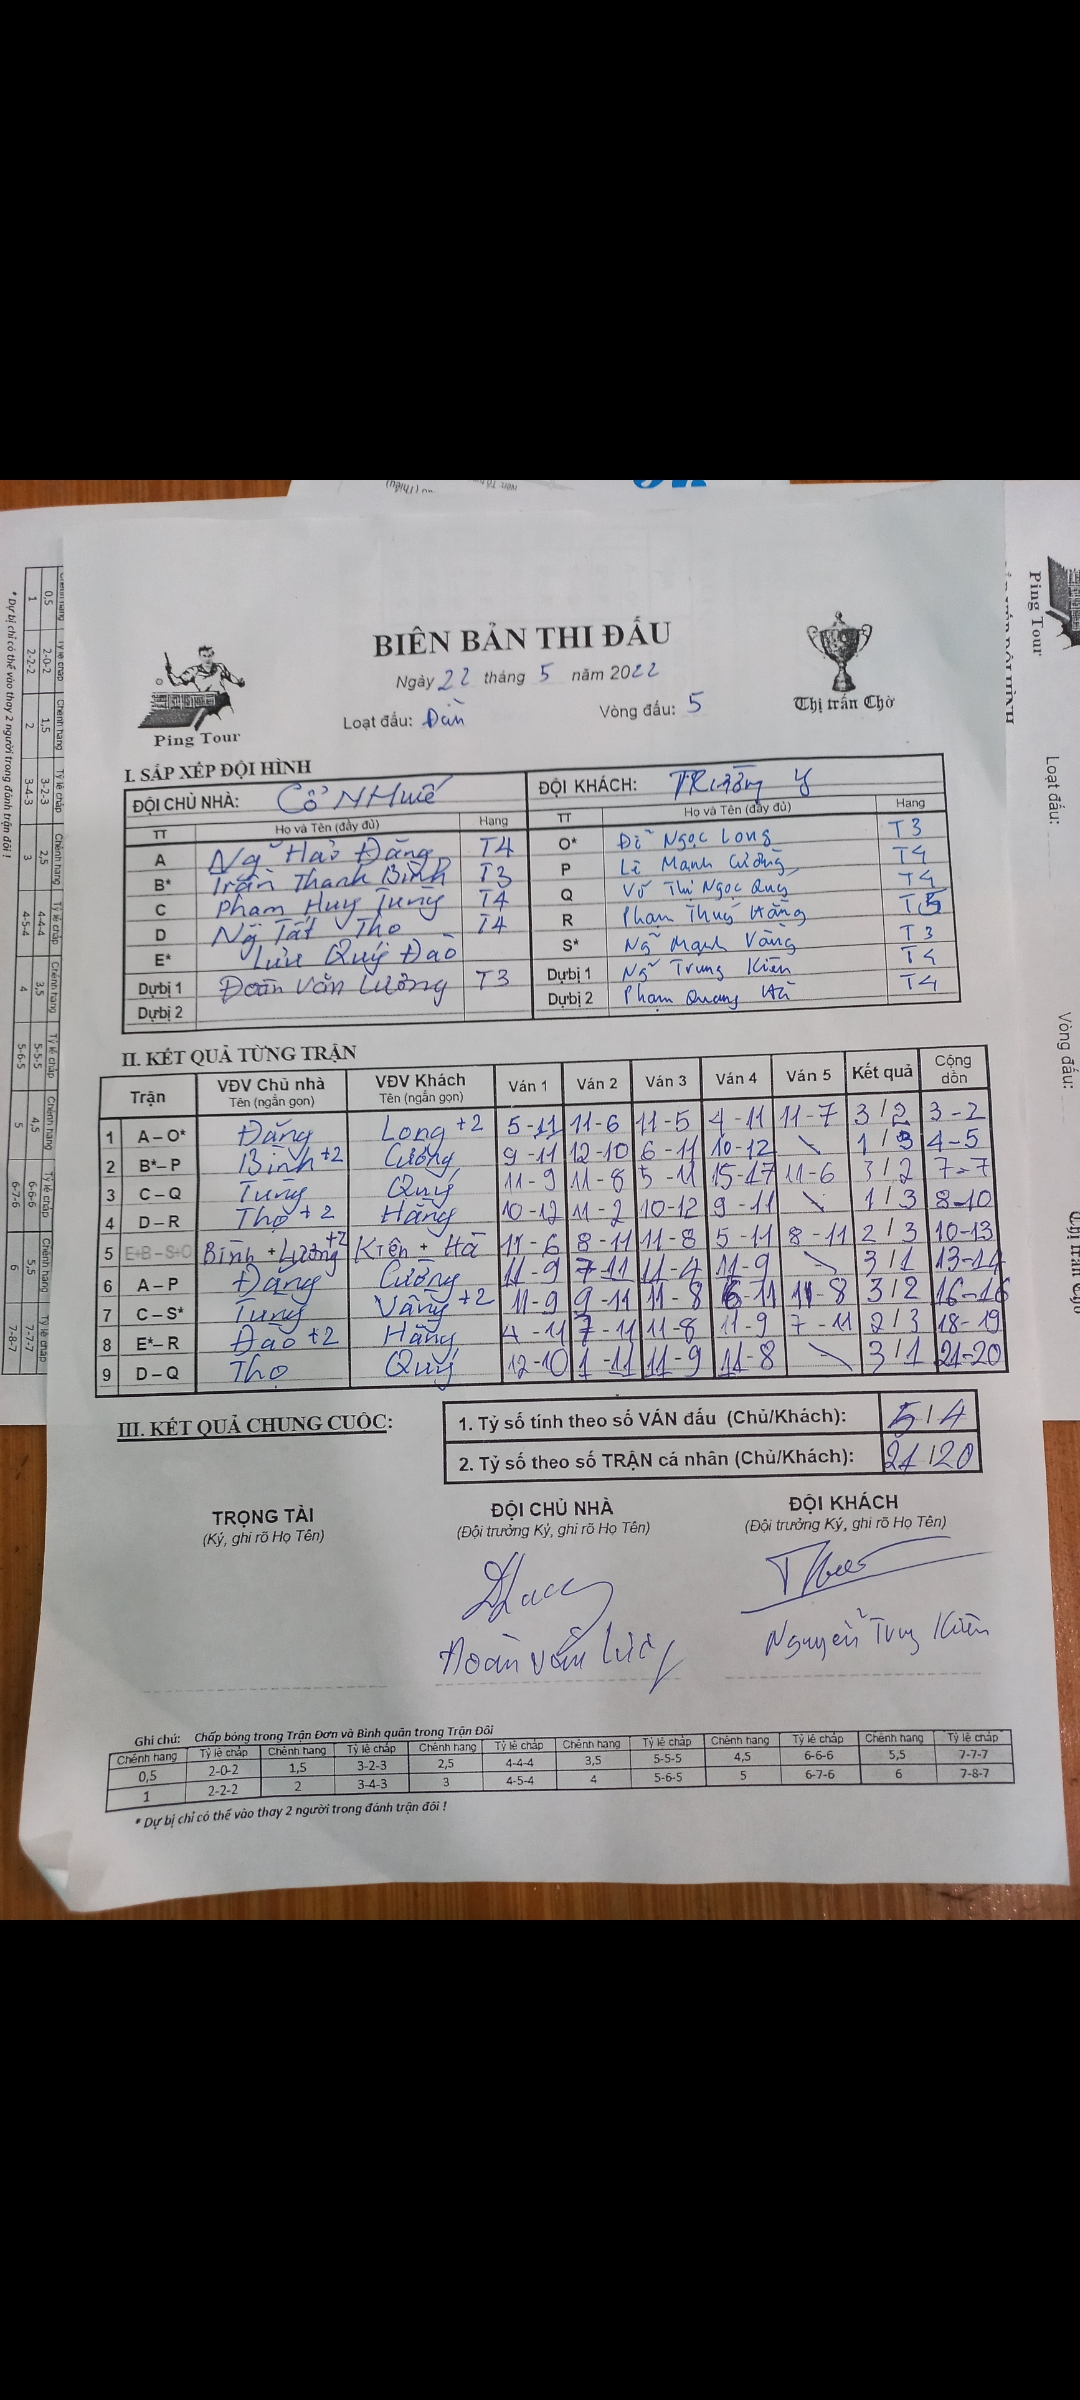 BIÊN BẢN THI ĐẤU
Ngày 22 tháng 5 năm 2022
Loạt đấu: Đàn Vòng đấu: 5
Ping Tour
Thị trấn Chờ
I. SẮP XẾP ĐỘI HÌNH
ĐỘI CHỦ NHÀ: Cổ NHuế ĐỘI KHÁCH: TRường Y
TT Họ và Tên (đầy đủ) Hạng TT Họ và Tên (đầy đủ) Hạng
A Ng~ Hải Đăng T4 O* Đỗ Ngọc Long T3
B* Trần Thanh Bình T3 P Lê Mạnh Cường T4
C Phạm Huy Tùng T4 Q Võ Thị Ngọc Quý T4
D Ng~ Tất Thọ T4 R Phạm Thuý Hằng T5
E* Lưu Quý Đạo S* Ng~ Mạnh Vàng T3
Dự bị 1 Đoàn Văn Lương T3 Dự bị 1 Ng~ Trung Kiên T4
Dự bị 2 Dự bị 2 Phạm Quang Hà T4
II. KẾT QUẢ TỪNG TRẬN
Trận VĐV Chủ nhà Tên (ngắn gọn) VĐV Khách Tên (ngắn gọn) Ván 1 Ván 2 Ván 3 Ván 4 Ván 5 Kết quả Cộng dồn
1 A – O* Đăng Long +2 5-11 11-6 11-5 4-11 11-7 3/2 3-2
2 B* – P Bình +2 Cường 9-11 12-10 6-11 10-12 \ 1/3 4-5
3 C – Q Tùng Quý 11-9 11-8 5-11 15-17 11-6 3/2 7-7
4 D – R Thọ +2 Hằng 10-12 11-2 10-12 9-11 \ 1/3 8-10
5 E+B – S+O Bình + Lương +2 Kiên + Hà 11-6 8-11 11-8 5-11 8-11 2/3 10-13
6 A – P Đăng Cường 11-9 7-11 11-4 11-9 \ 3/1 13-14
7 C – S* Tùng Vàng +2 11-9 9-11 11-8 6-11 11-8 3/2 16-16
8 E* – R Đạo +2 Hằng 4-11 7-11 11-8 11-9 7-11 2/3 18-19
9 D – Q Thọ Quý 12-10 1-11 11-9 11-8 \ 3/1 21-20
III. KẾT QUẢ CHUNG CUỘC:
1. Tỷ số tính theo số VÁN đấu (Chủ/Khách): 5/4
2. Tỷ số theo số TRẬN cá nhân (Chủ/Khách): 21/20
TRỌNG TÀI ĐỘI CHỦ NHÀ ĐỘI KHÁCH
(Ký, ghi rõ Họ Tên) (Đội trưởng Ký, ghi rõ Họ Tên) (Đội trưởng Ký, ghi rõ Họ Tên)
Đoàn Văn Nguyễn Trung Kiên
Ghi chú: Chấp bóng trong Trận Đơn và Bình quân trong Trận Đôi
Chênh hạng Tỷ lệ chấp Chênh hạng Tỷ lệ chấp Chênh hạng Tỷ lệ chấp Chênh hạng Tỷ lệ chấp Chênh hạng Tỷ lệ chấp Chênh hạng Tỷ lệ chấp
0,5 2-0-2 1,5 3-2-3 2,5 4-4-4 3,5 5-5-5 4,5 6-6-6 5,5 7-7-7
1 2-2-2 2 3-4-3 3 4-5-4 4 5-6-5 5 6-7-6 6 7-8-7
* Dự bị chỉ có thể vào thay 2 người trong đánh trận đôi !
Chênh hạng Tỷ lệ chấp Chênh hạng Tỷ lệ chấp Chênh hạng Tỷ lệ chấp Chênh hạng Tỷ lệ chấp Chênh hạng Tỷ lệ chấp Chênh hạng Tỷ lệ chấp
0,5 2-0-2 1,5 3-2-3 2,5 4-4-4 3,5 5-5-5 4,5 6-6-6 5,5 7-7-7
1 2-2-2 2 3-4-3 3 4-5-4 4 5-6-5 5 6-7-6 6 7-8-7
* Dự bị chỉ có thể vào thay 2 người trong đánh trận đôi !
Ping Tour
Loạt đấu:
Vòng đấu:
Thị trấn Chờ